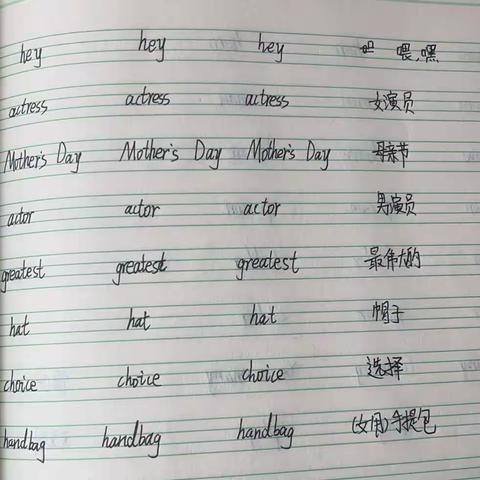 hey hey hey 喂,嘿
actress actress actress 女演员
Mother's Day Mother's Day Mother's Day 母亲节
actor actor actor 男演员
greatest greatest greatest 最伟大的
hat hat hat 帽子
choice choice choice 选择
handbag handbag handbag (女用)手提包